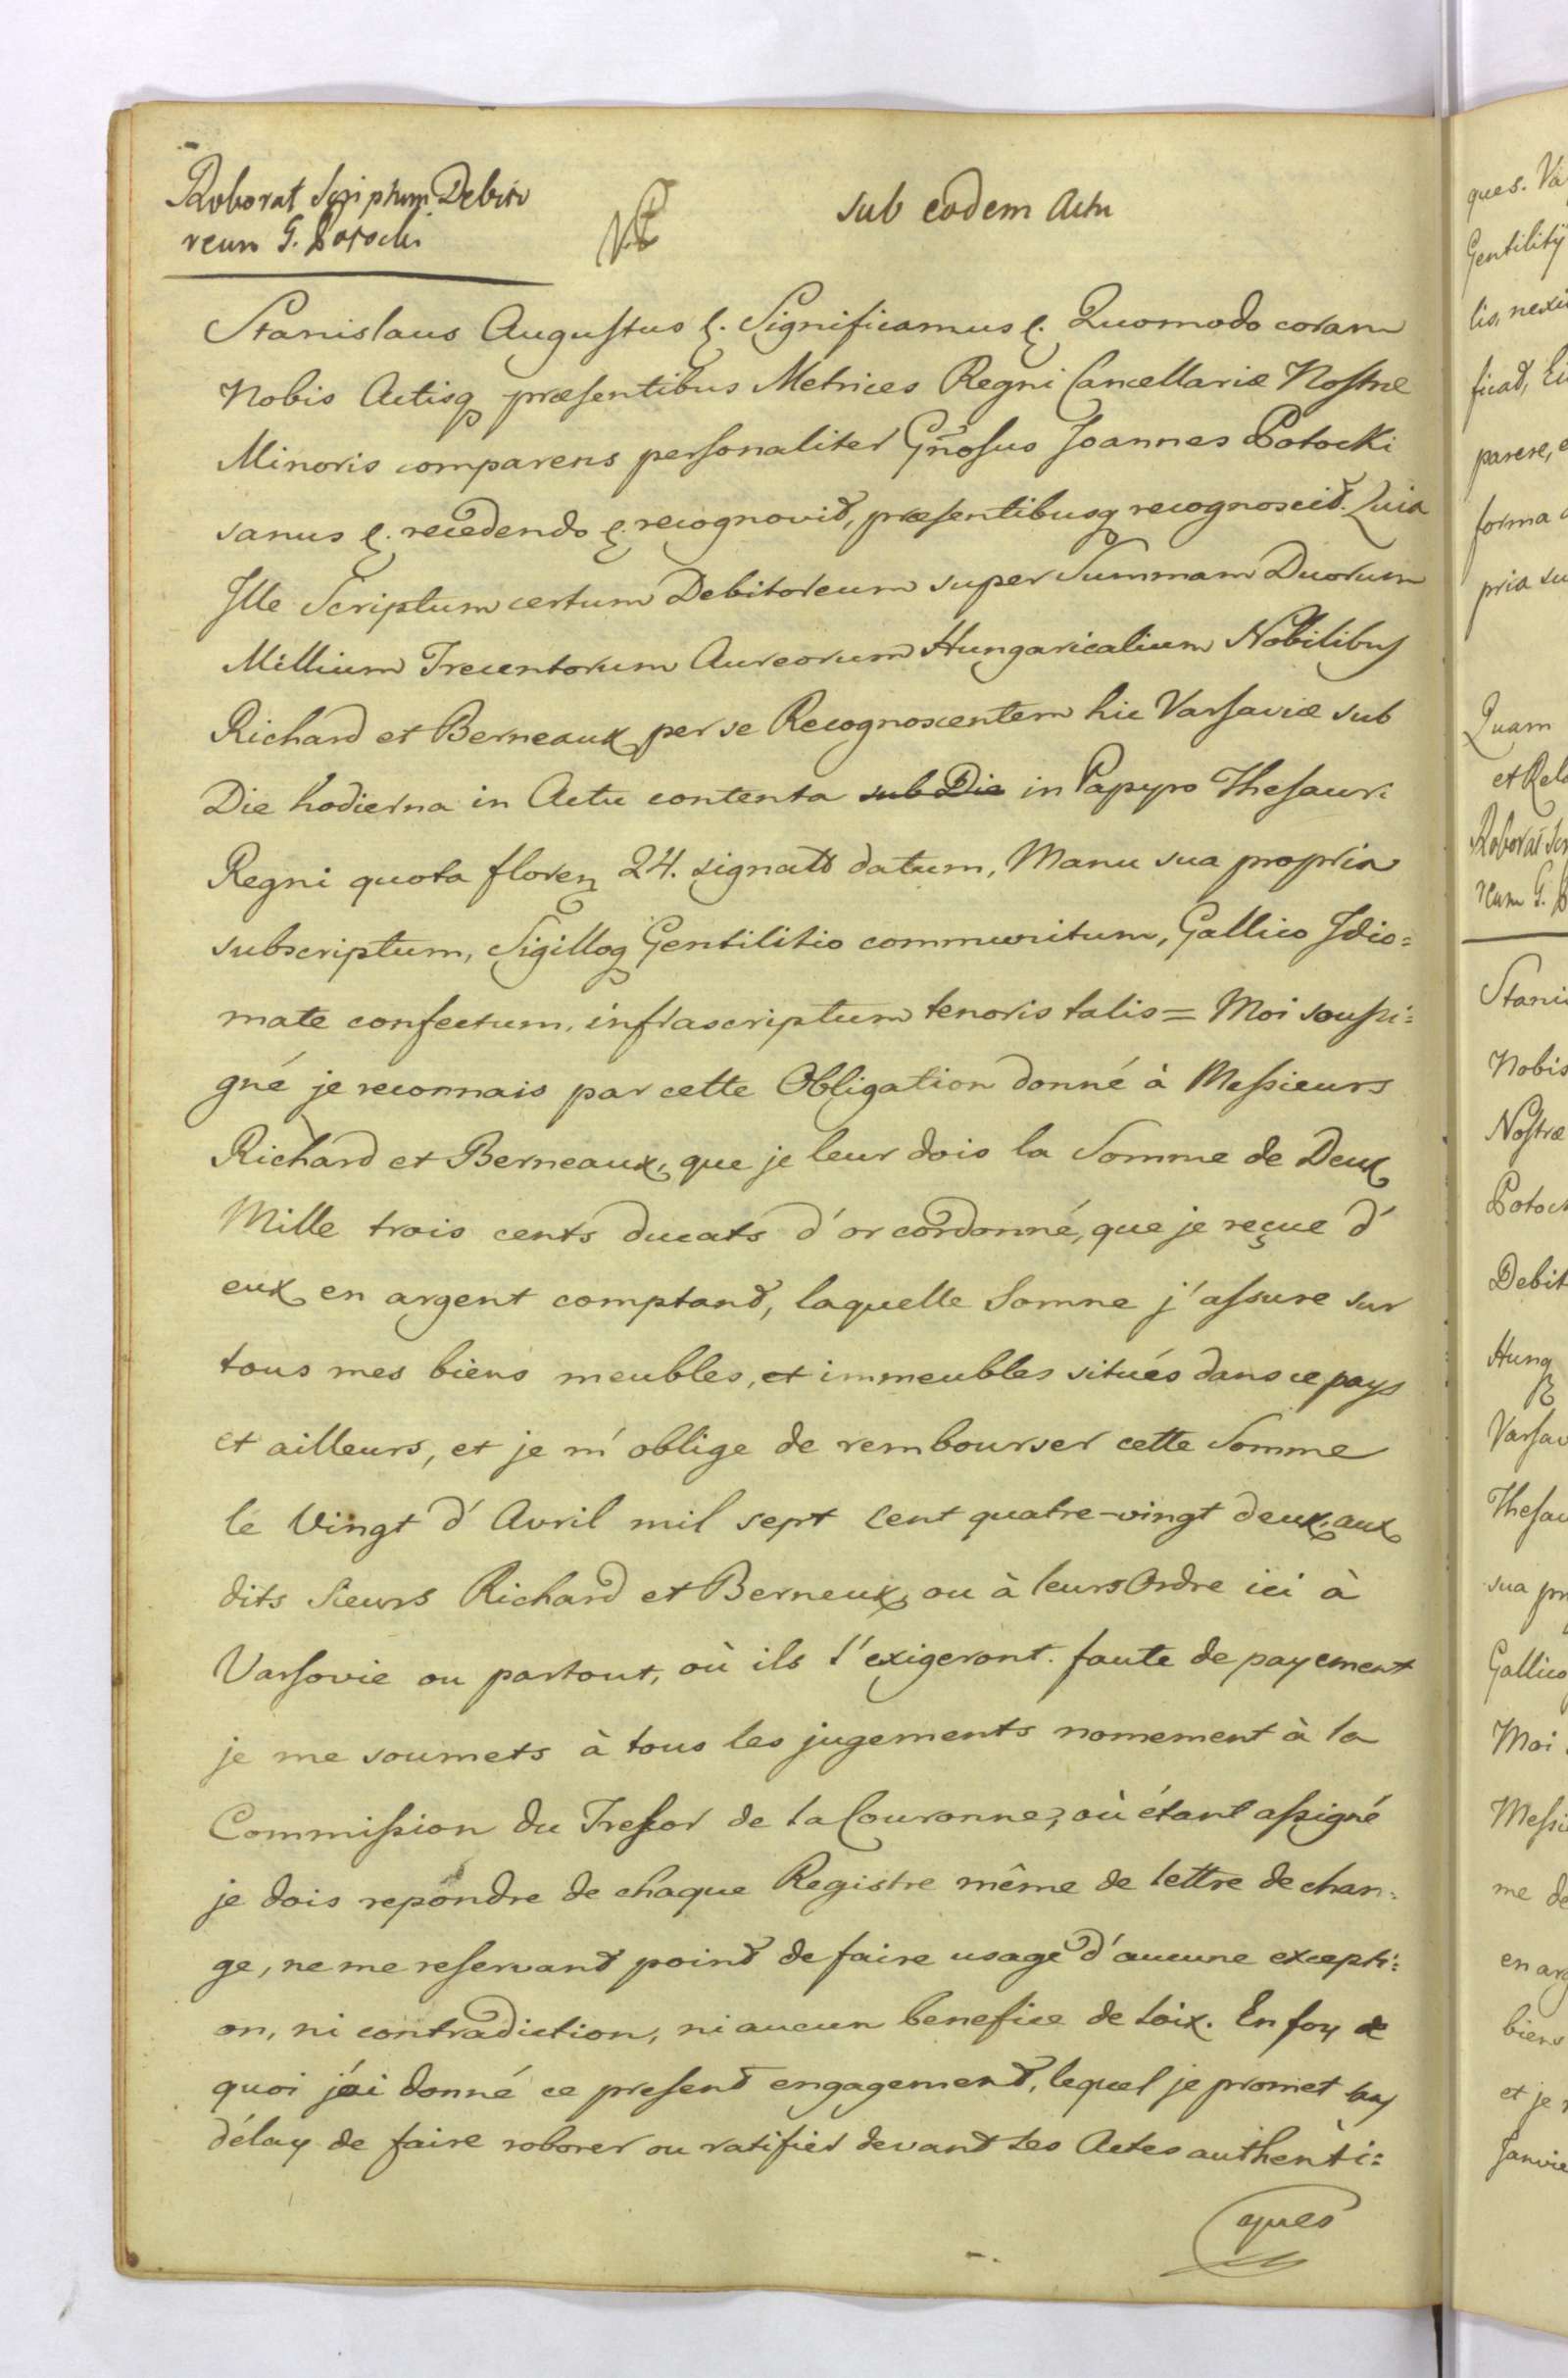 Roborat Scriptum Debito
reum G. Potocki
sub eodem Actu
Stanislaus Augustus &. Significamus &. Quomodo coram
Nobis Actisq præsentibus Metrices Regni Cancellariæ Nostræ
Minoris comparens personaliter Gnosus Joannes Potocki
sanus &. recedendo &. recognovit, præsentibusq recognoscit. Quia
Ille Scriptum certum Debitoreum super Summam Duorum
Millium Trecentorum Aureorum Hungaricalium Nobilibus
Richard et Berneaux per se Recognoscentem hic Varsaviæ sub
Die hodierna in Actu contenta sub Die in Papyro Thesauri
Regni quota floren 24. signatt datum, Manu sua propria
subscriptum, Sigilloq Gentilitio communitum, Gallico Idio=
mate confectum, infrascriptum tenoris talis = Moi soussi=
gné je reconnais par cette Obligation donné à Messieurs
Richard et Berneaux, que je leur dois la Somme de Deux
Mille trois cents ducats d'or cordonné, que je reçue d'
eux en argent comptand, laquelle Somne j'assure sur
tous mes biens meubles, et immeubles situés dans ce pays
et ailleurs, et je m'oblige de rembourser cette Somme
le Vingt d'Avril mil sept cent quatre-vingt deux, aux
dits Sieurs Richard et Berneux, ou à leurs Ordre ici à
Varsovie ou partout, où ils l'exigeront. faute de payement
je me soumets à tous les jugements nomement à la
Commission du Tresor de la Couronne, où étant assigné
je dois repondre de chaque Registre même de lettre de chan=
ge, ne me reservand point de faire usage d'aucune excepti=
on, ni contradiction, ni aucun benefice de Loix. En foy de
quoi j'ai donné ce present engagement, lequel je promet sans
délay de faire roborer ou ratifier devant les Actes authenti=
ques
ques.
Gentilitÿ
lis,
parere,
forma
pria
Quam
et Rel
Stani
Nobis
Nostræ
Potock
Debit
Hung
Varsav
Thesau
sua pr
Gallico
Moi
Messi
me de
en arg
biens
et je
Janvie